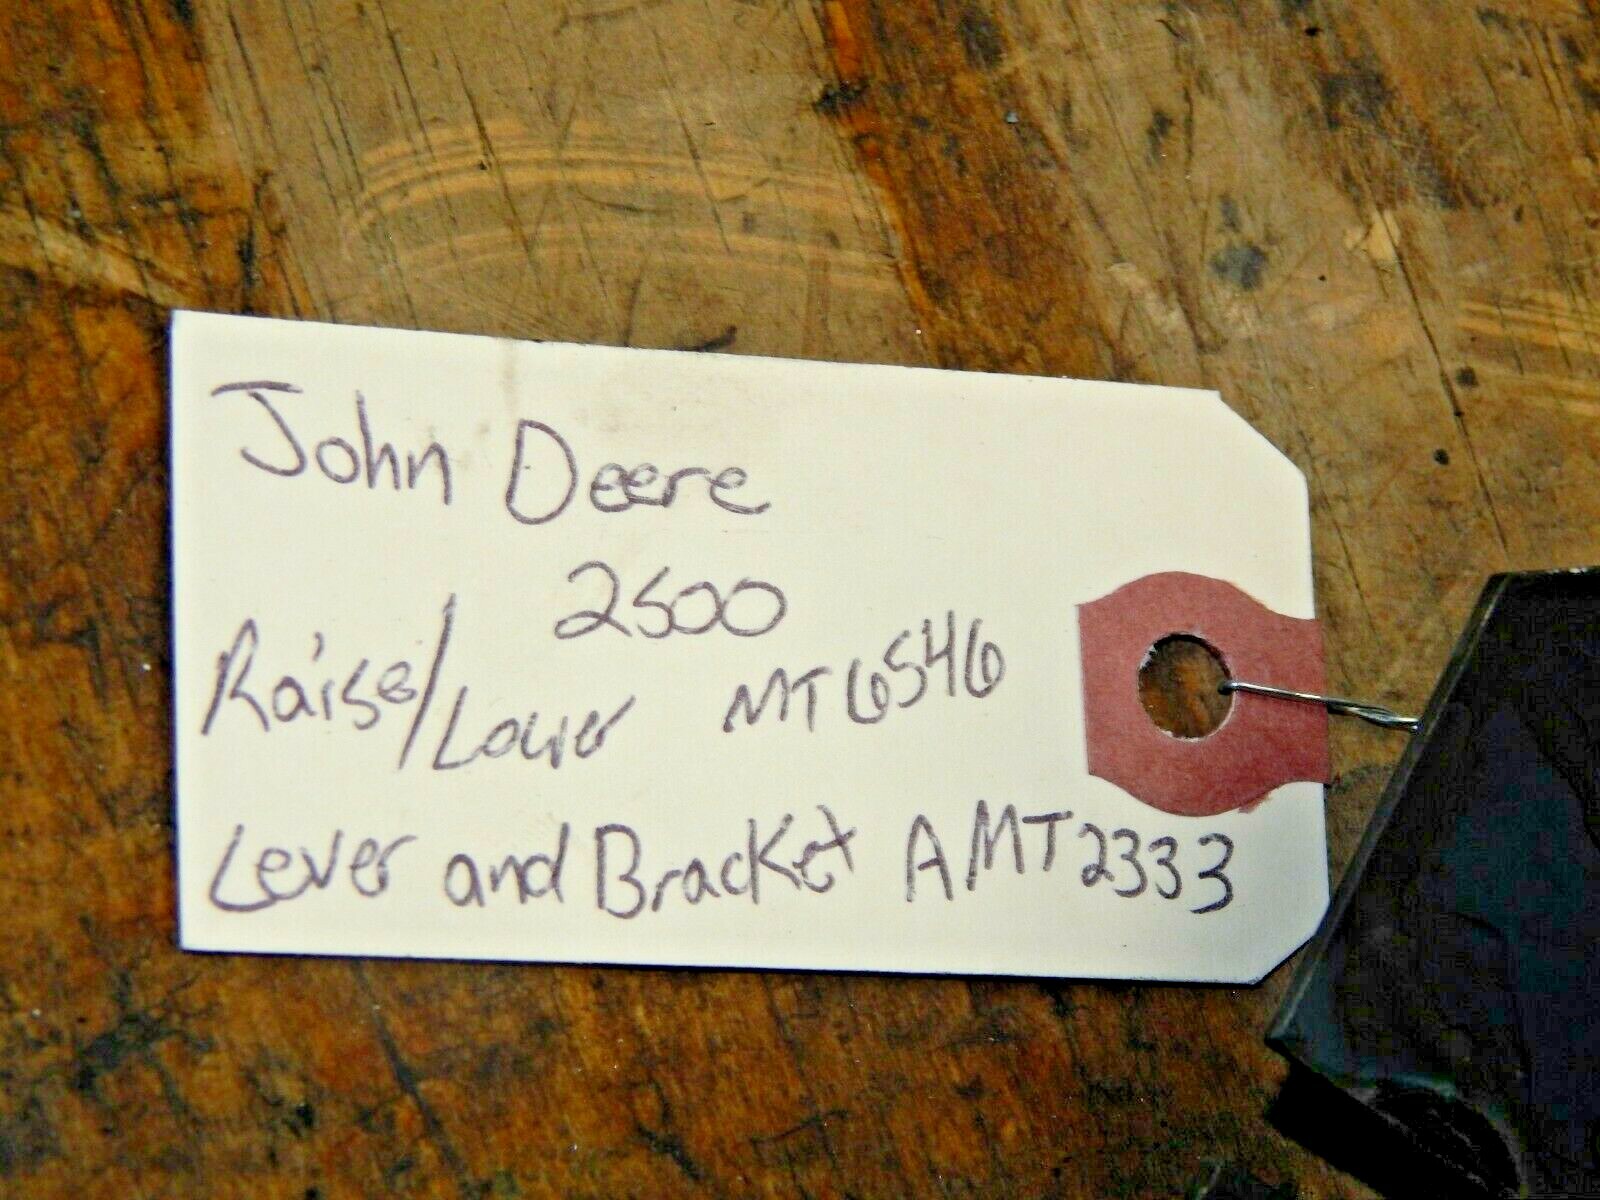 John Deere
2500
Raise/Lower MT6546
Lever and Bracket AMT2333